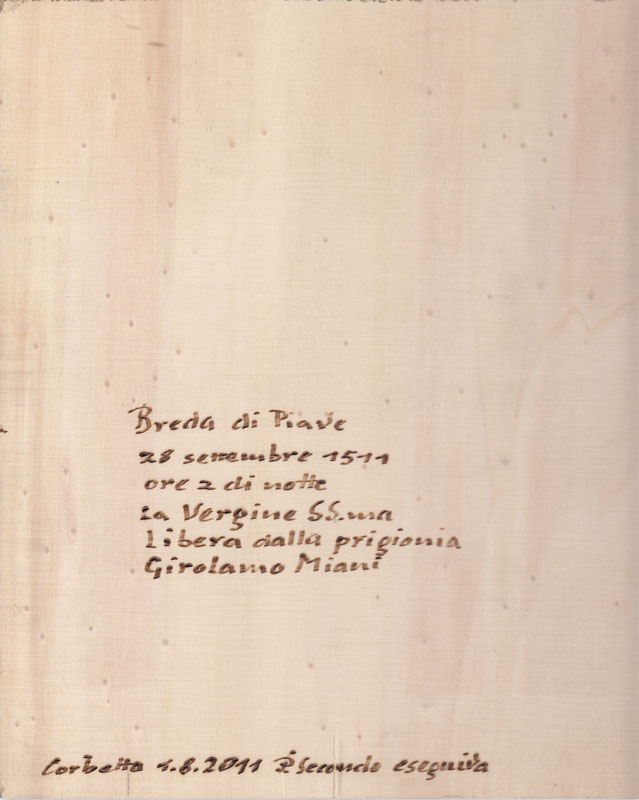 Breda di Piave
28 settembre 1511
ore 2 di notte
La Vergine SS.ma
libera dalla prigionia
Girolamo Miani
Corbetta 1.8.2011 P. Secondo eseguiva